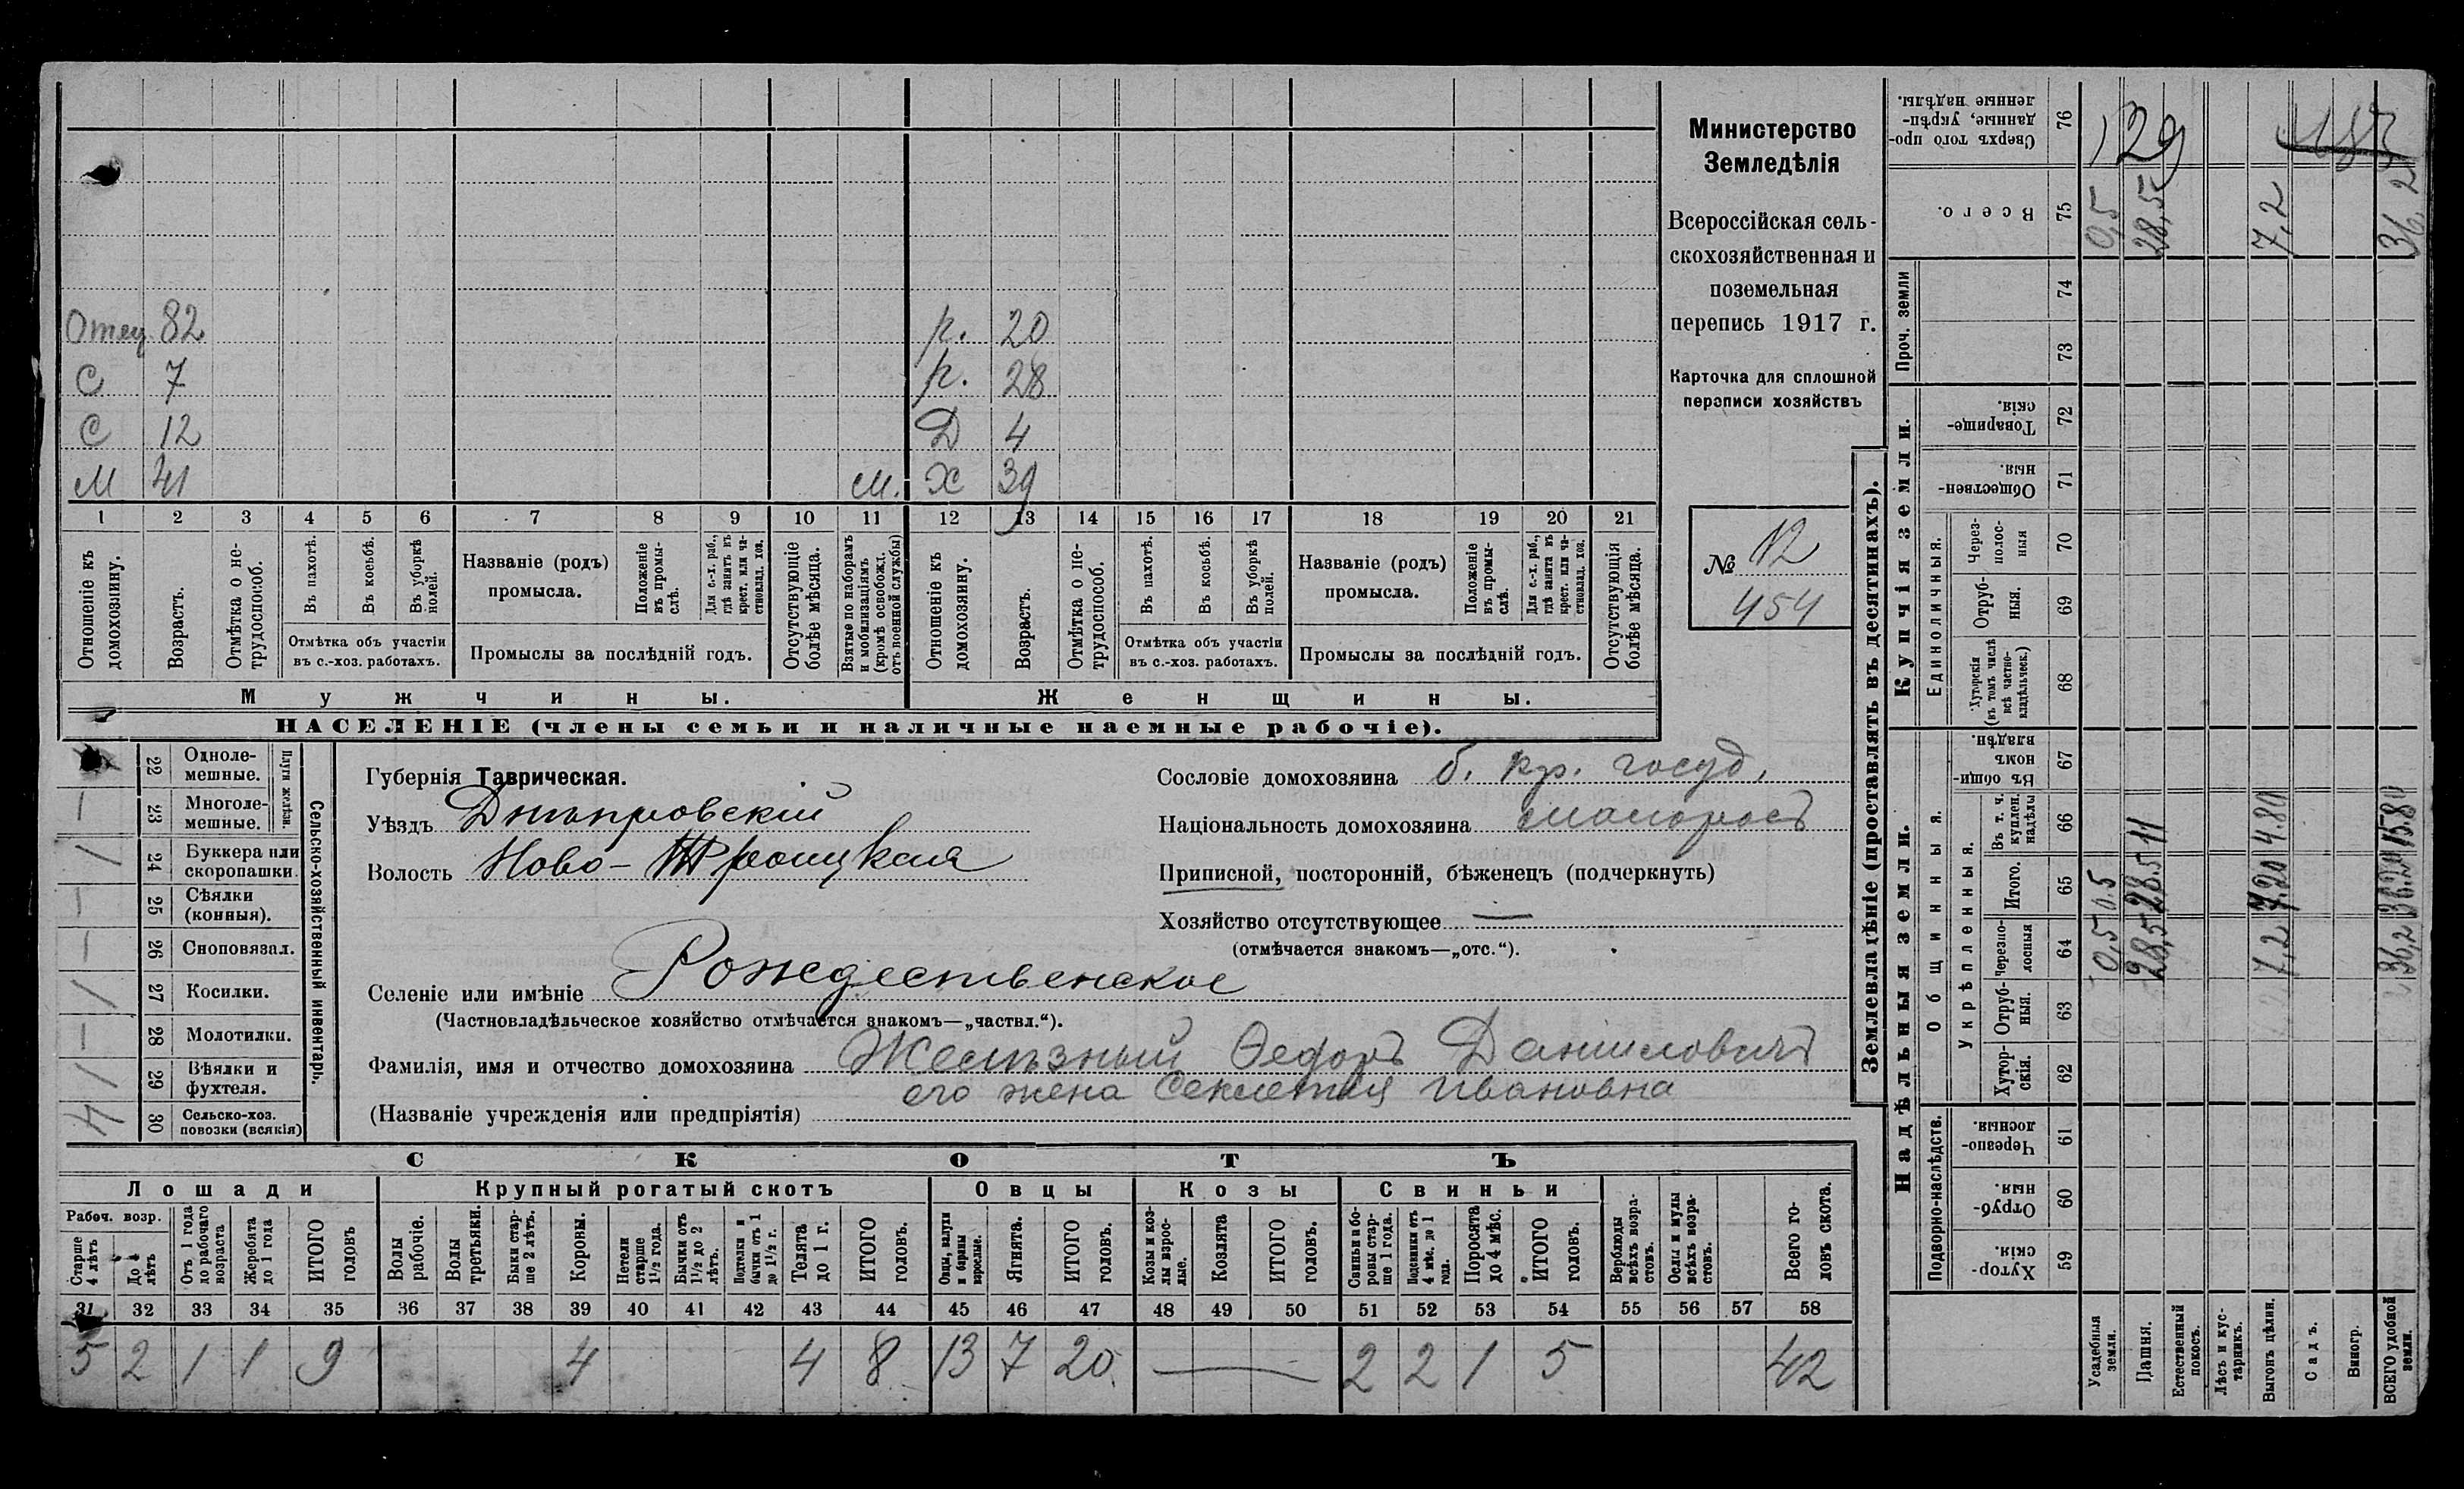 Отец 82 р. 20
С 7 р. 28
С 12 Д 4
М 41 м. Х 39
1 2 3 4 5 6 7 8 9 10 11 12 13 14 15 16 17 18 19 20 21
Отношеніе къ домохозяину.
Возрастъ.
Отмѣтка о не-трудоспособ.
Въ пахотѣ.
Въ косьбѣ.
Въ уборкѣ полей.
Отмѣтка объ участіи
въ с.-хоз. работахъ.
Названіе (родъ)
промысла.
Положеніе въ промы-слѣ.
Для с.-х. раб., гдѣ занятъ въ крест. или ча-стновлад. хоз.
Промыслы за послѣдній годъ.
Отсутствующіе болѣе мѣсяца.
Взятые по наборамъ и мобилизаціямъ (кромѣ освобожд. отъ военной службы)
Отношеніе къ домохозяину.
Возрастъ.
Отмѣтка о не-трудоспособ.
Въ пахотѣ.
Въ косьбѣ.
Въ уборкѣ полей.
Отмѣтка объ участіи
въ с.-хоз. работахъ.
Названіе (родъ)
промысла.
Положеніе въ промы-слѣ.
Для с.-х. раб., гдѣ занята въ крест. или ча-стновлад. хоз.
Промыслы за послѣдній годъ.
Отсутствующія болѣе мѣсяца.
Мужчины. Женщины.
НАСЕЛЕНІЕ (члены семьи и наличные наемные рабочіе).
Министерство
Земледѣлія
Всероссійская сель-
скохозяйственная и
поземельная
перепись 1917 г.
Карточка для сплошной
переписи хозяйствъ
№ 12
454
22 Одноле-мешные.
23 Многоле-мешные.
Плуги желѣзн.
24 Буккера или скоропашки.
25 Сѣялки (конныя).
26 Сноповязал.
27 Косилки.
28 Молотилки.
29 Вѣялки и фухтеля.
30 Сельско-хоз. повозки (всякія)
Сельско-хозяйственный инвентарь.
— — 1 — — 1 — 1 4
Губернія Таврическая.
Уѣздъ Днѣпровскій
Волость Ново-Троицкая
Селеніе или имѣніе Рождественское
(Частновладѣльческое хозяйство отмѣчается знакомъ—„частвл.“).
Фамилія, имя и отчество домохозяина Желѣзный Ѳедоръ Даниловичъ
его жена Секлетия Ивановна
(Названіе учрежденія или предпріятія)
Сословіе домохозяина б. кр. госуд.
Національность домохозяина малоросъ
Приписной, посторонній, бѣженецъ (подчеркнуть)
Хозяйство отсутствующее —
(отмѣчается знакомъ—„отс.“).
СКОТЪ
Лошади Крупный рогатый скотъ Овцы Козы Свиньи
Рабоч. возр.
Старше 4 лѣтъ
До 4 лѣтъ
Отъ 1 года до рабочаго возраста
Жеребята до 1 года
ИТОГО головъ
Волы рабочіе.
Волы третьяки.
Быки стар-ше 2 лѣтъ.
Коровы.
Нетели старше 1½ года.
Бычки отъ 1½ до 2 лѣтъ.
Подтелки и бычки отъ 1 до 1½ г.
Телята до 1 г.
ИТОГО головъ.
Овцы, валухи и бараны взрослые.
Ягнята.
ИТОГО головъ.
Козы и коз-лы взрос-лые.
Козлята
ИТОГО головъ.
Свиньи и бо-ровы стар-ше 1 года.
Подсвинки отъ 4 мѣс. до 1 года.
Поросята до 4 мѣс.
ИТОГО головъ.
Верблюды всѣхъ возра-стовъ.
Ослы и мулы всѣхъ возра-стовъ.
Всего го-ловъ скота.
31 32 33 34 35 36 37 38 39 40 41 42 43 44 45 46 47 48 49 50 51 52 53 54 55 56 57 58
5 2 1 1 9 4 4 8 13 7 20 — 2 2 1 5 42
Землевладѣніе (проставлять въ десятинахъ).
Надѣльныя земли. Купчія земли. Проч. земли
Подворно-наслѣдств.
Общинныя.
Укрѣпленныя.
Единоличныя.
59 Хутор-скія.
60 Отруб-ныя.
61 Черезпо-лосныя.
62 Хутор-скія.
63 Отруб-ныя.
64 Черезпо-лосныя
65 Итого.
66 Въ т. ч. куплен. надѣлы
67 Въ общи-номъ владѣн.
68 Хуторскія (въ томъ числѣ всѣ частно-владѣльческ.)
69 Отруб-ныя.
70 Через-полос-ныя
71 Обществен-ныя.
72 Товарище-скія.
73
74
75 Всего.
76 Сверхъ того про-данные, укрѣп-ленные надѣлы.
Усадебныя земли. 0,5 0.5 0,5
Пашня. 28,5 28.5 11 28,5
Естественный покосъ.
Лѣсъ и кус-тарникъ.
Выгонъ цѣлин. 7,2 7.20 4.80 7,2
Садъ.
Виногр.
ВСЕГО удобной земли. 36,2 36.20 15.80 36,2
129